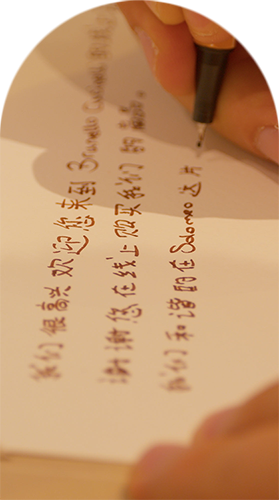 我们很高兴欢迎您来到 Brunello Cucinelli
谢谢您在线上购买我们的
我们和谐的在Solomeo这片